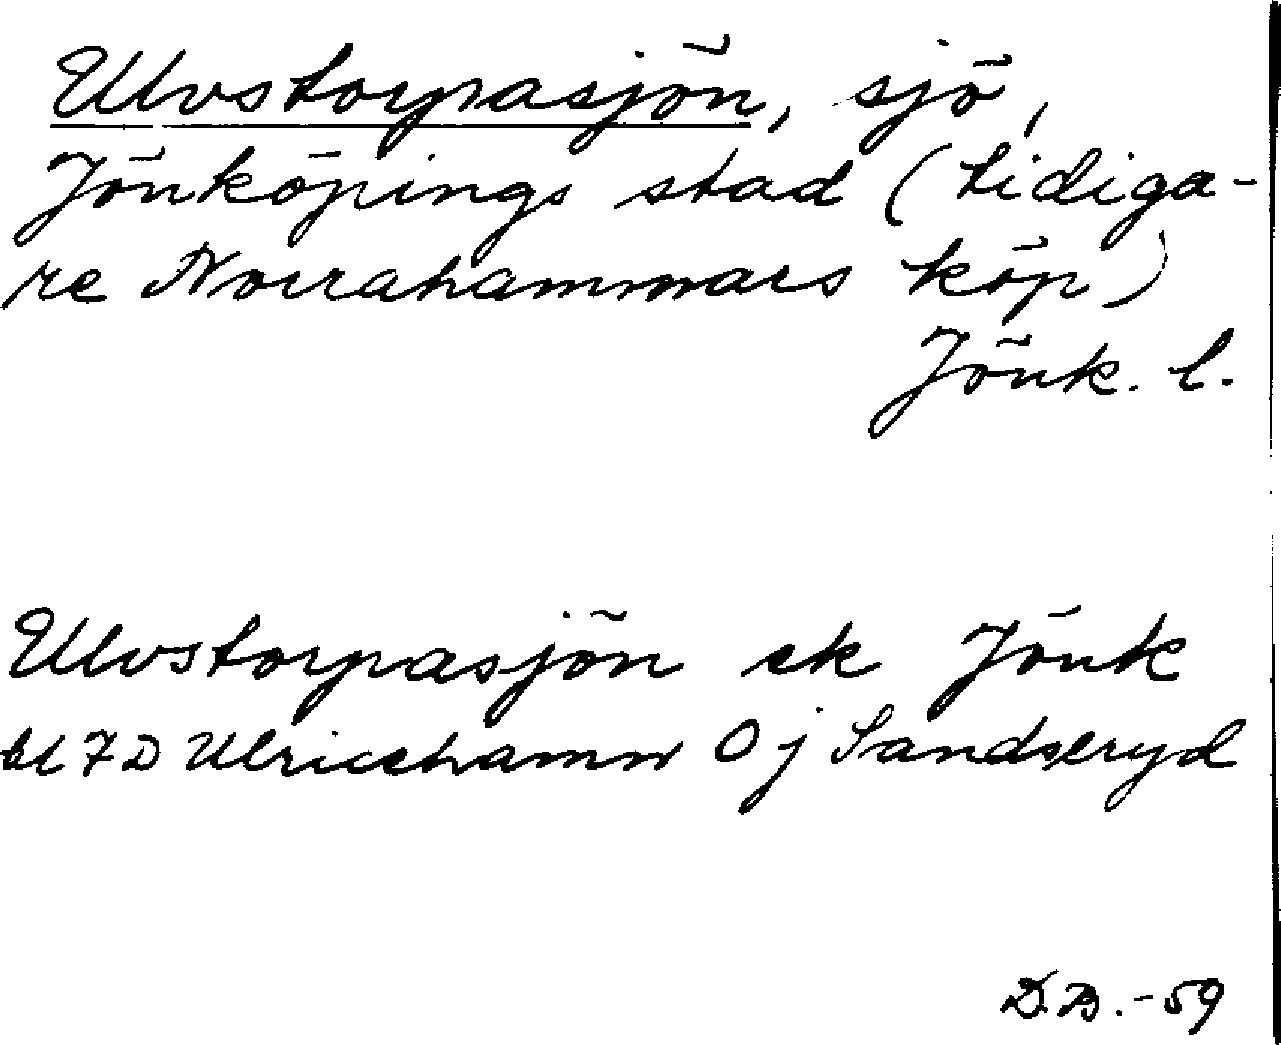 Ulvstorpasjön, sjö,
Jönköpings stad (tidiga-
re Norrahammars köp)
Jönk. l.
Ulvstorpasjön ek Jönk
bl 7D Ulricehamn Oj Sandseryd
D.B. -59